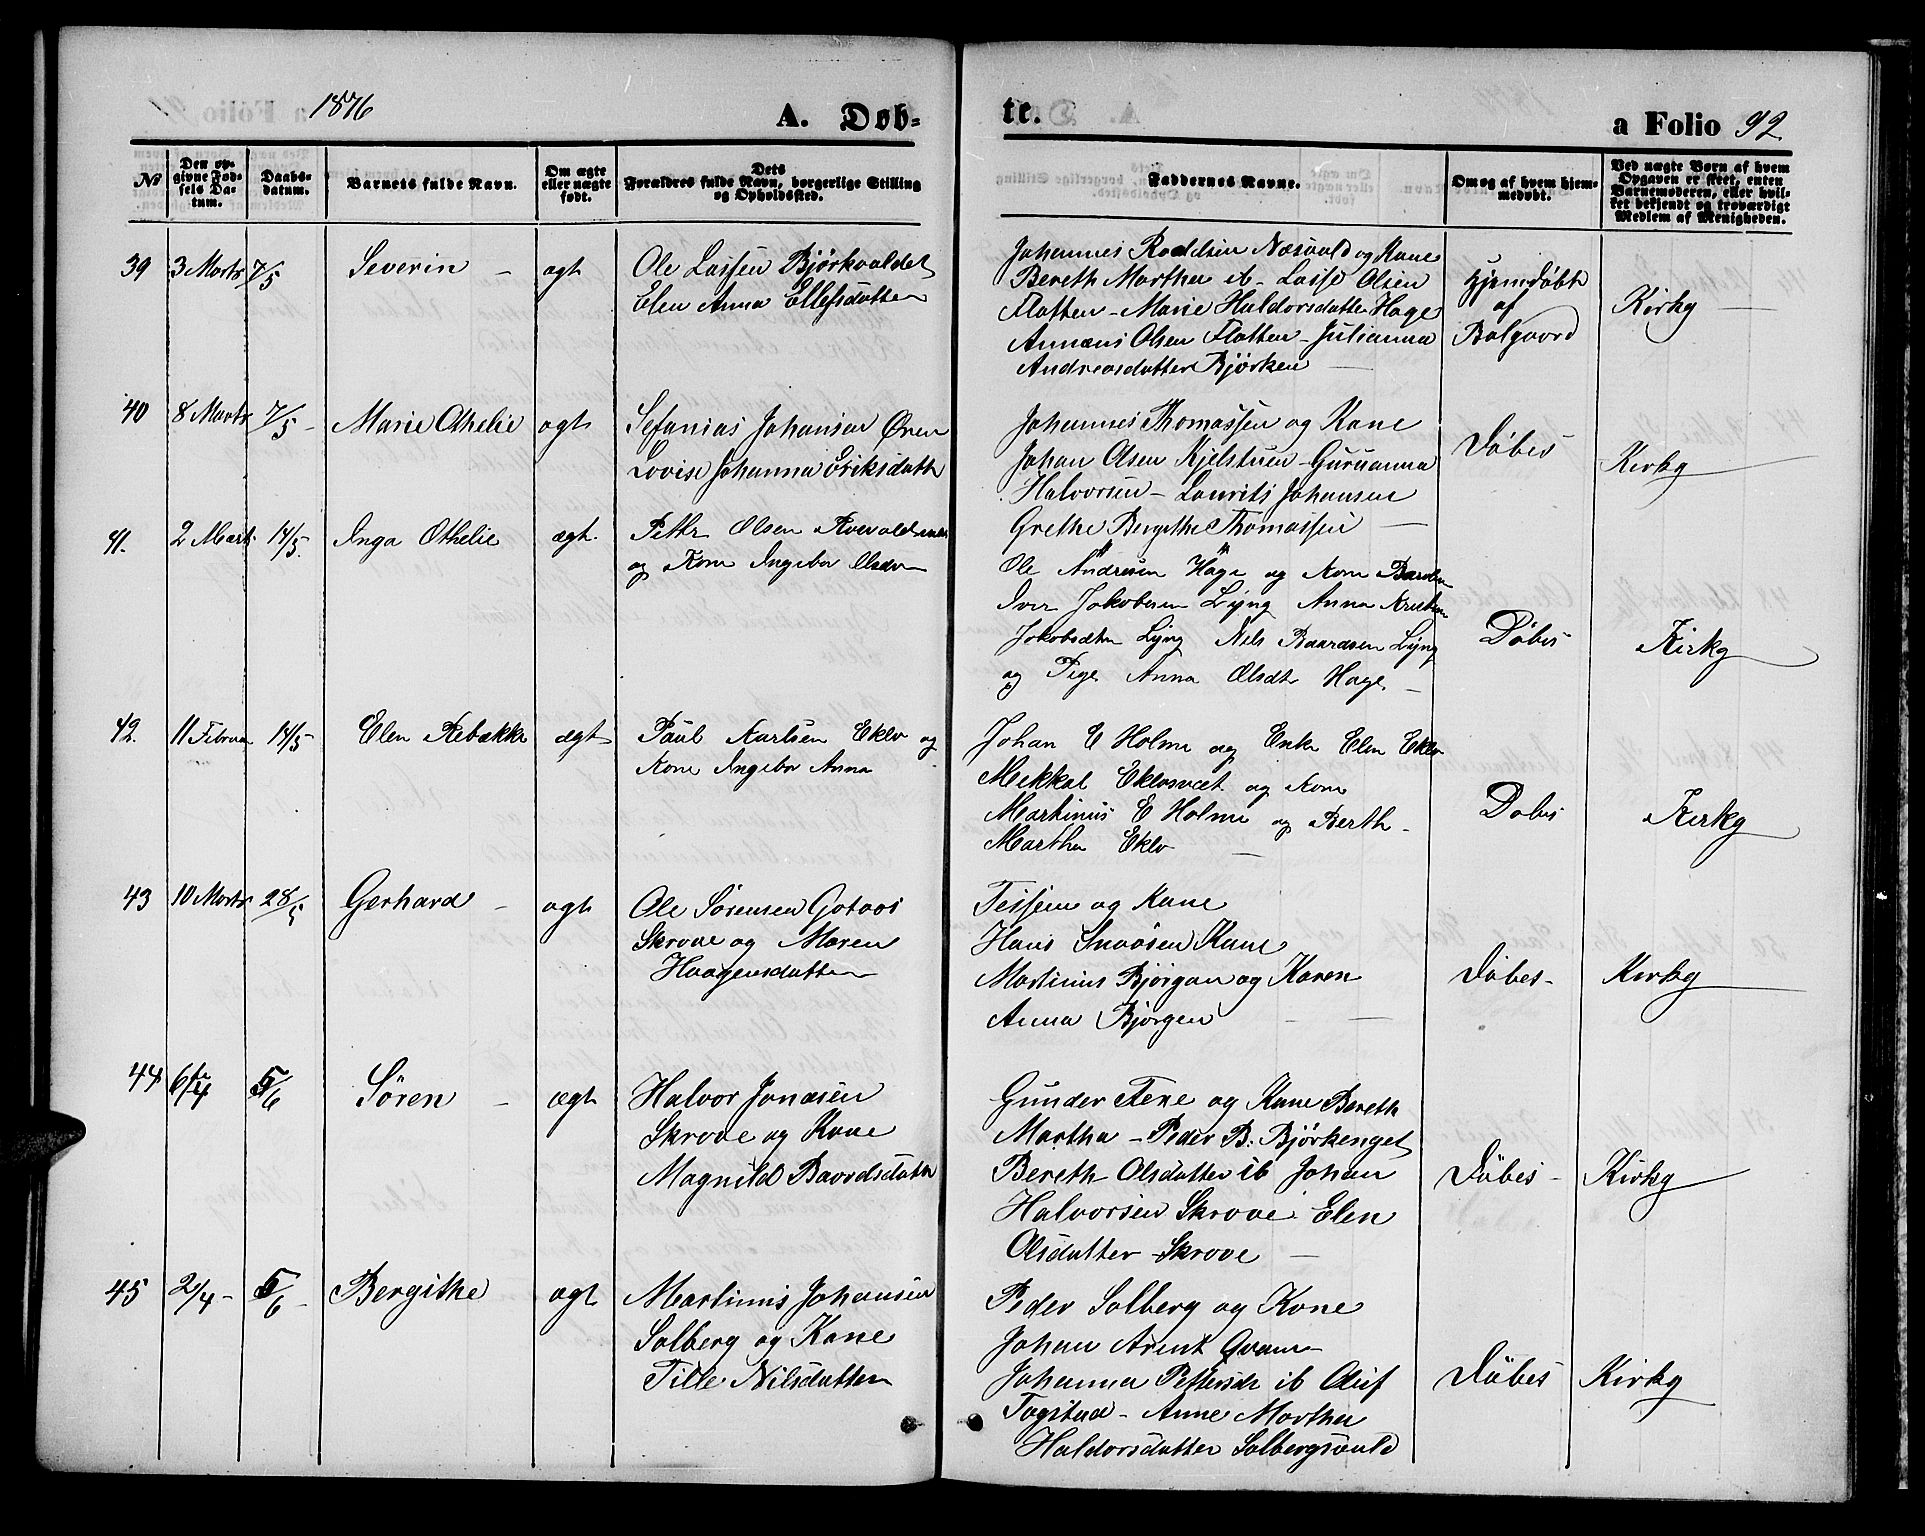 1876
A. Døb-
te.
a Folio 92
No
Den op-
givne Fød-
sels Da-
tum.
Daabs-
datum.
Barnets fulde Navn.
Om ægte
eller uægte
født.
Dets
Forældres fulde Navn, borgerlige Stilling
og Opholdssted.
Faddernes Navne.
Om og af hvem hjem-
medøbt.
Ved uægte Børn af hvem
Opgaven er skeet, enten
Barnemoderen, eller hvil-
ket bekjendt og troværdigt
Medlem af Menigheden.
39 3 Marts 7/5 Severin – agt
Ole Lassen Bjørkvaldet
Elen Anna Ellefsdatter
Johannes Næsvald og Kane
Bereth Martha ib – Lasse Olsen
Flatten – Marie Haldorsdatter Hage
Olsen Flatten – Julianna
Andreasdatter Bjørken –
Hjemdøbt
af
Bolgaard
Kirky
40 8 Marts 7/5 – Marie Othelie agt
Sefanias Johansen Øren
Lovise Johanna Eriksdatt
Johannes Thomassen og Kane
Johan Olsen Kjelstuen – Guruanna
Halvorsen – Laurits Johansen
Grethe Bergithe Thomassen –
Døbes
Kirky
41. 2 Marts 14/5. Inga Othelie ægt.
Petter Olsen
og Kone Ingebor Olsdr
Ole Andresen Hage og Kone
Iver Jakobsen Lyng Anna
Jakobsdtr Lyng Nels Baardsen Lyng
og Pige Anna Olsdtr Hage –
Døbes
Kirky
42. 11 Februar 14/5 Elen Rebekke ægt
Paul Karlsen Eklo og
Kone Ingebor Anna
Johan E Holme og Enke Elen Eklo
Mekkal Eklosvæt og Kone
Martinus E Holme og Berth
Martha Eklo –
Døbes
Kirky
43 10 Marts 28/5 Gerhard – agt
Ole Sørensen Gotaas
Skrove og Maren
Haagensdatter
og Kane
Hans Snaasen Kane
Martinus Bjørgan og Karen
Anna Bjørgen – –
Døbes –
Kirky
44 6/4 5/6 Søren – ægt
Halvor Jonasen
Skrove og Kone
Magnild Baardsdatt
Gunder Fene og Kane Bereth
Martha – Peder B. Bjørkenget
Bereth Olsdatter ib Johan
Halvorsen Skrove Elen
Olsdatter Skrove –
Døbes –
Kirky
45 2/4 – 5/6 – Bergithe agt
Martinus Johansen
Solberg og Kane
Tille Nilsdatter
Peder Solberg og Kone
Johan Arent Qvam
Johanna Pettersdr ib Oluf
Fagstad – Anne Martha
Haldorsdatter Solbergsvald
Døbes
Kirky